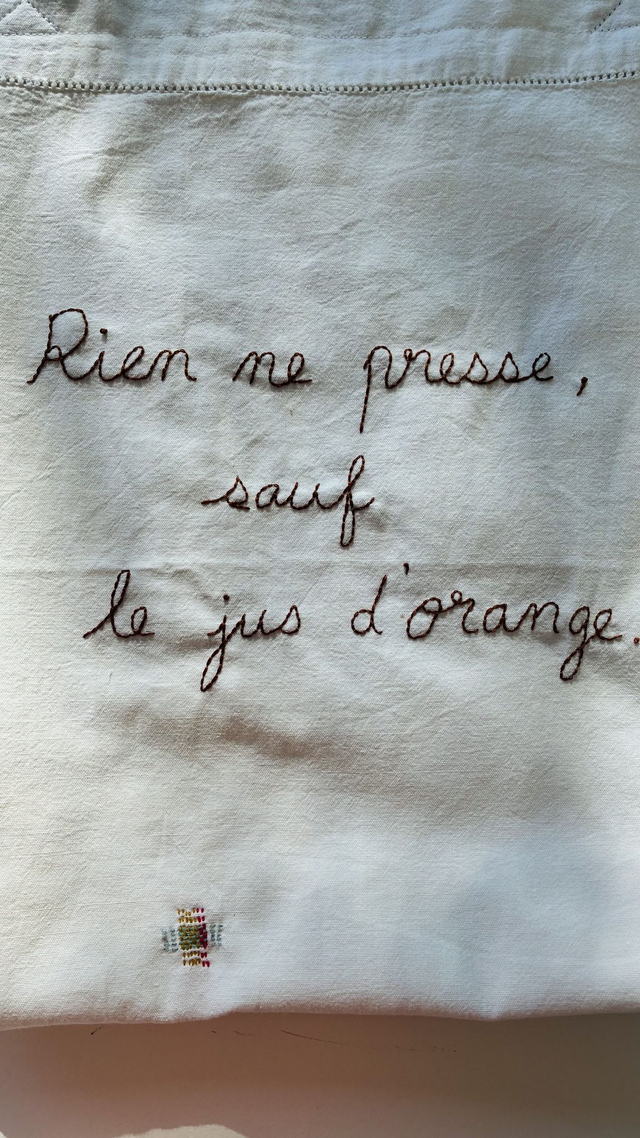 Rien ne presse,
sauf
le jus d'orange.